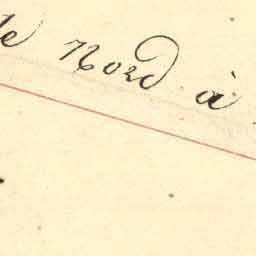 le Nord à